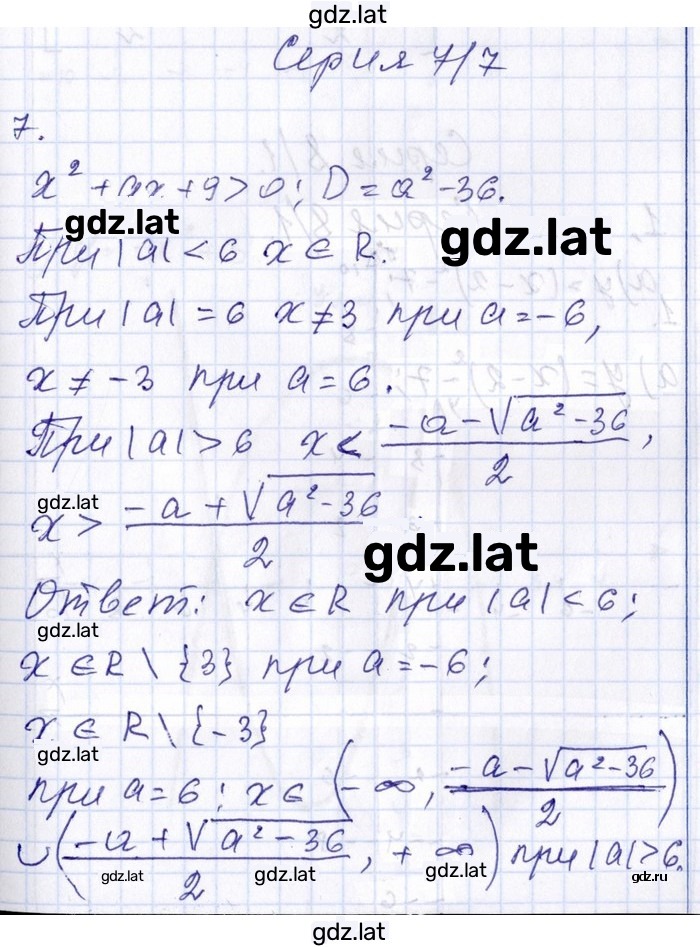 gdz.lat
Серия 7/7
7.
x² + ax + 9 > 0; D = a² - 36.
gdz.lat
gdz.lat
При |a| < 6 x ∈ R.
При |a| = 6 x ≠ 3 при a = -6,
x ≠ -3 при a = 6.
При |a| > 6 x < (-a - √(a² - 36))/2,
gdz.lat
x > (-a + √(a² - 36))/2
gdz.lat
Ответ: x ∈ R при |a| < 6;
gdz.lat
x ∈ R \ {3} при a = -6;
x ∈ R \ {-3}
gdz.lat
при a = 6; x ∈ (-∞, (-a - √(a² - 36))/2)
∪ ((-a + √(a² - 36))/2, +∞) при |a| > 6.
gdz.lat
gdz.lat
gdz.lat
gdz.ru
gdz.lat